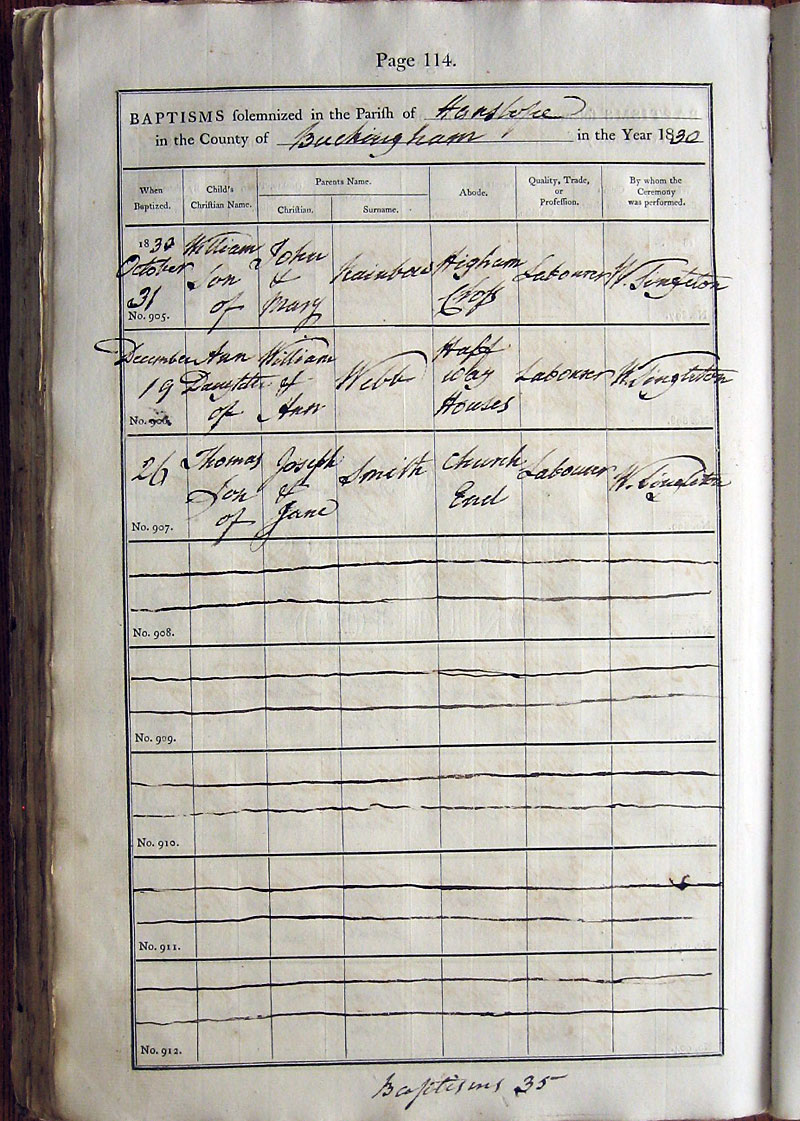 Page 114.
BAPTISMS ſolemnized in the Pariſh of Hanslope
in the County of Buckingham in the Year 1830
When Baptized.
Child's Chriſtian Name.
Parents Name.
Chriſtian.
Surname.
Abode.
Quality, Trade, or Profeſſion.
By whom the Ceremony was performed.
1830 October 31 No. 905.
William Son of
John & Mary
Rainbow
Higham Croſs
Labourer
W. Singleton
December 19 No. 906.
Ann Daughter of
William & Ann
Webb
Half way Houses
Labourer
W. Singleton
26 No. 907.
Thomas Son of
Joseph & Jane
Smith
Church End
Labourer
W. Singleton
No. 908.
No. 909.
No. 910.
No. 911.
No. 912.
Baptisms 35